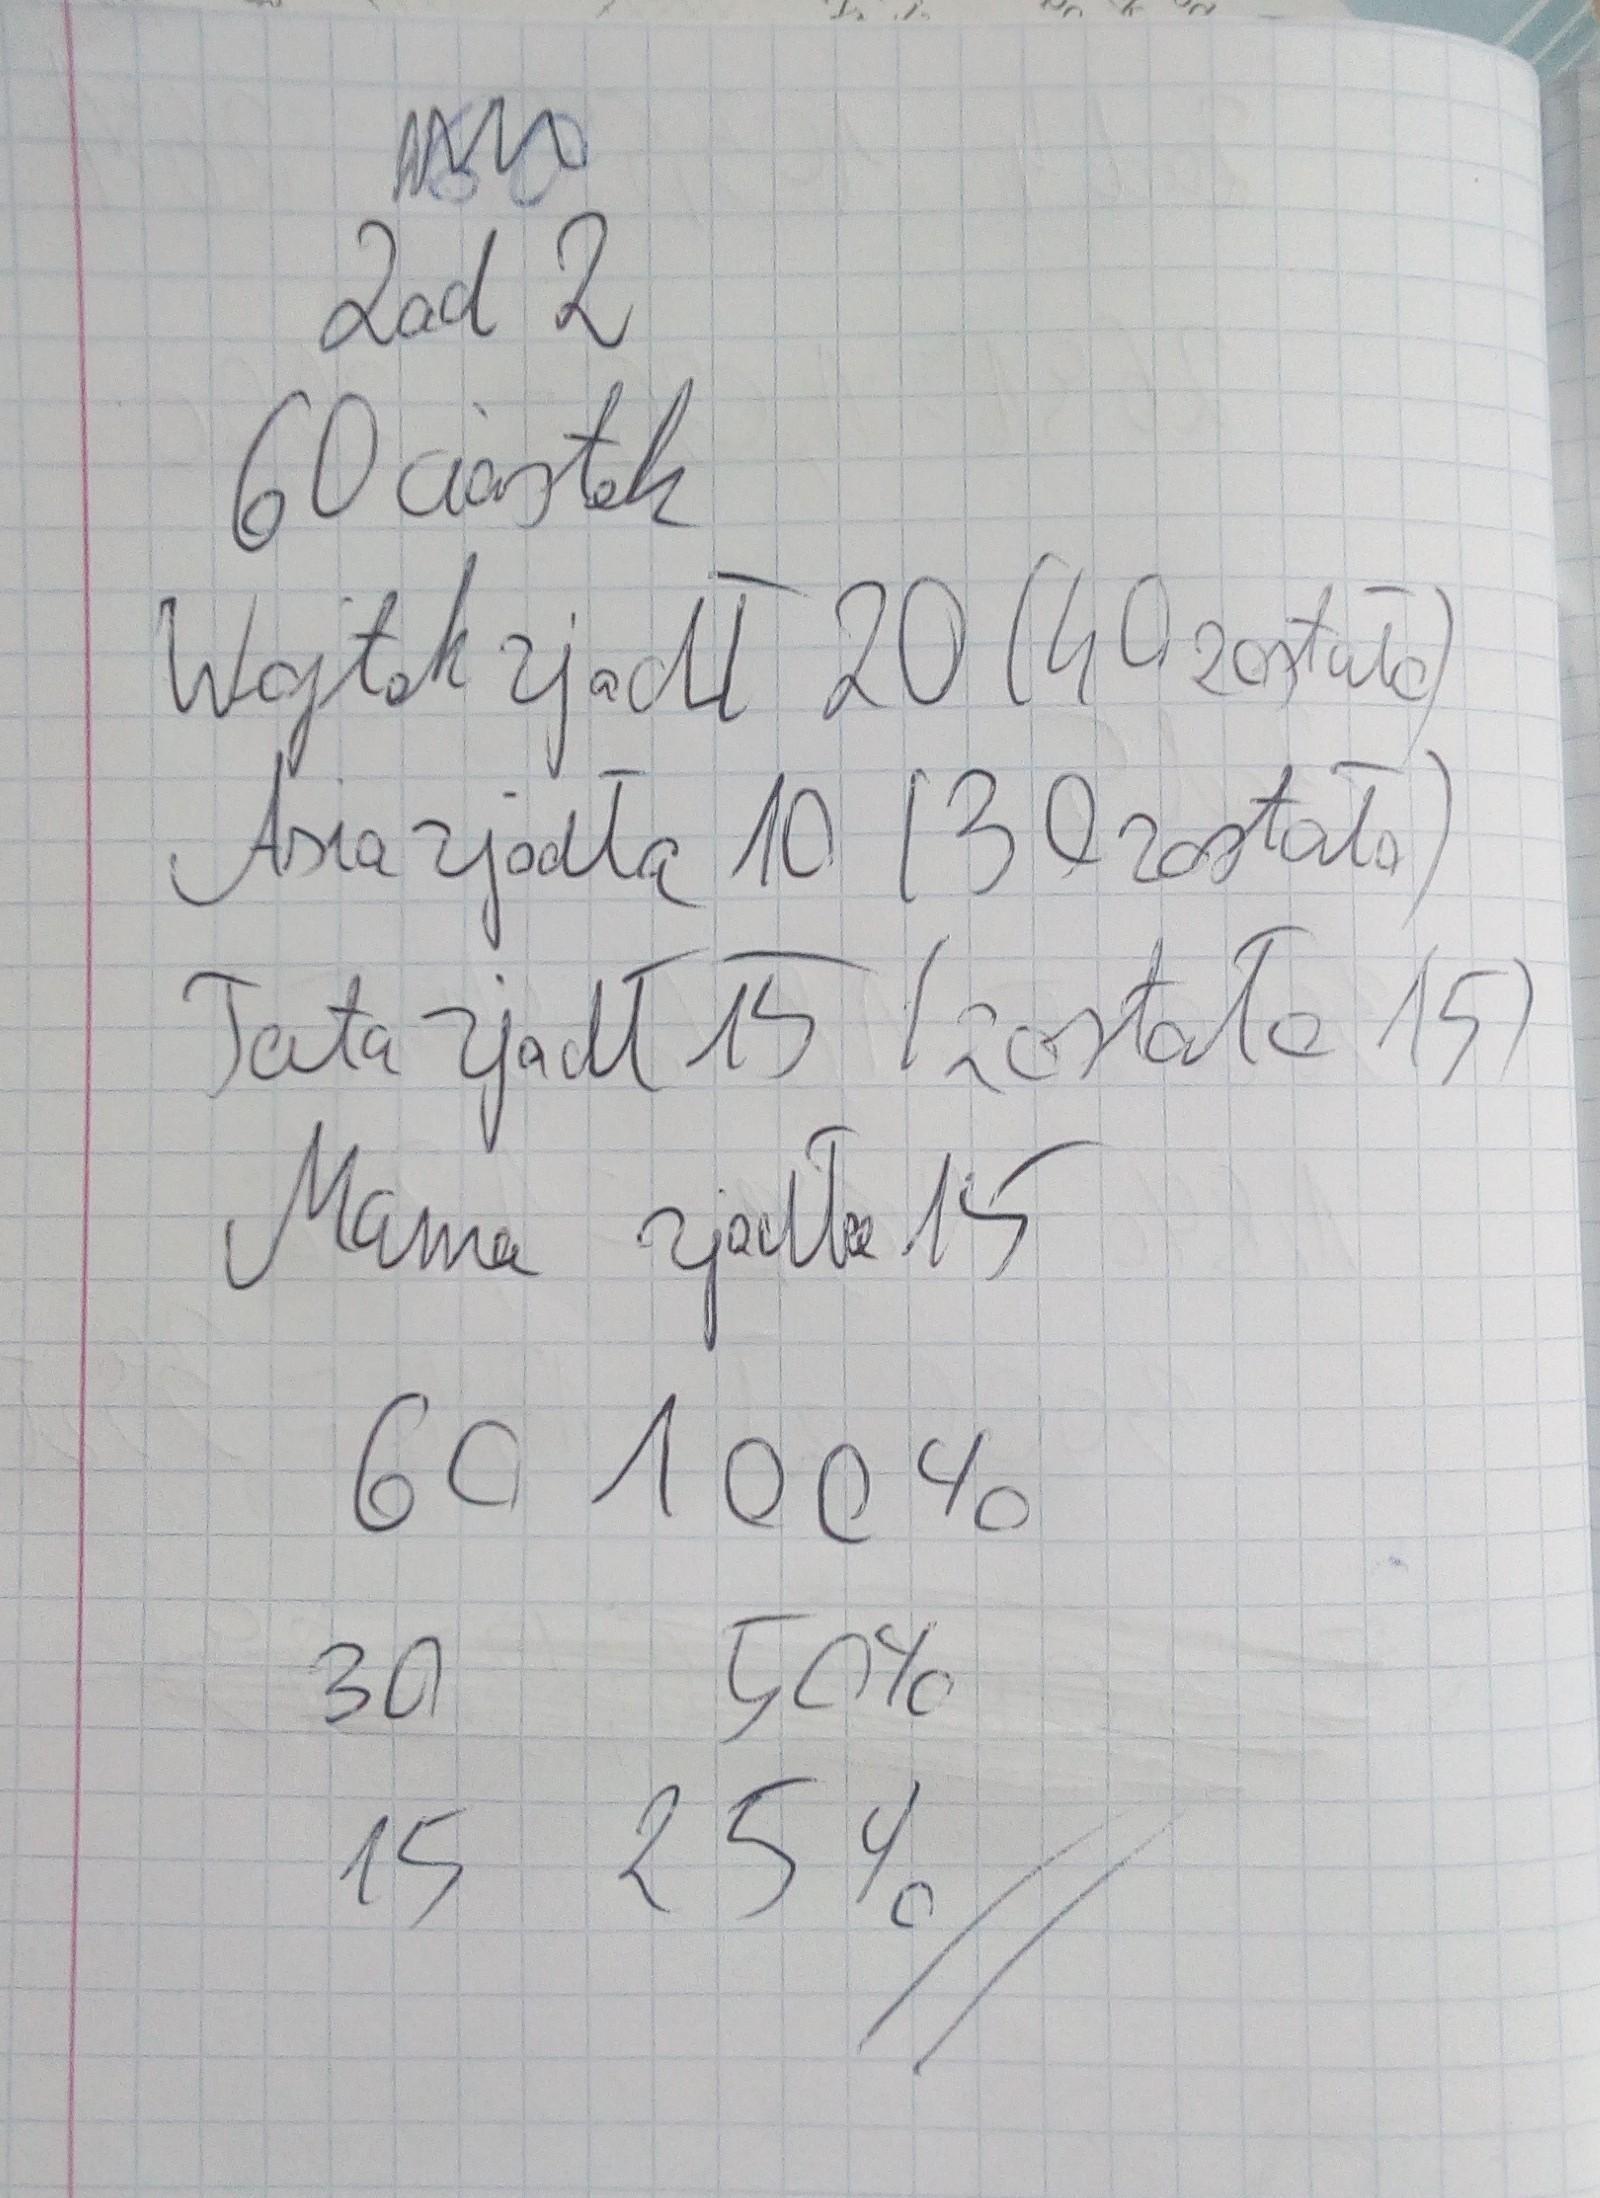 Zad 2
60 ciastek
Wojtek zjadł 20 (40 zostało)
Asia zjadła 10 (30 zostało)
Tata zjadł 15 (zostało 15)
Mama zjadła 15
60 100%
30 50%
15 25%